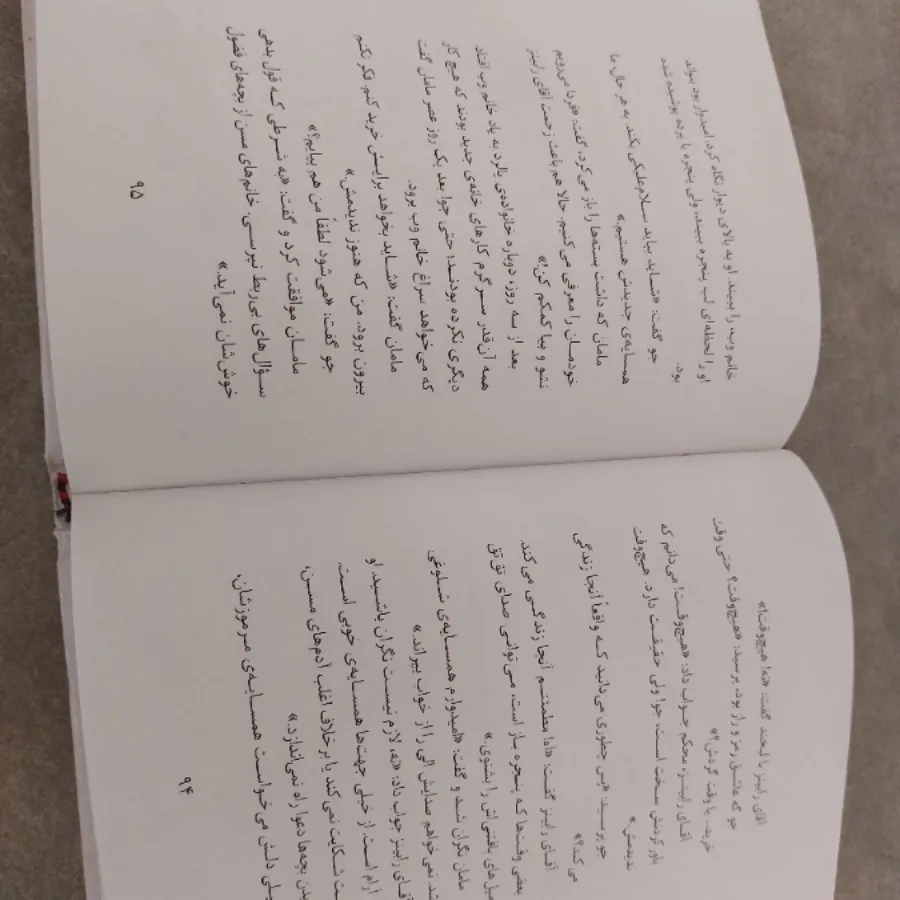 آقای رابینز با لبخند گفت: «نه! هیچ‌وقت!»
جو که عاشق رمز و راز بود، پرسید: «هیچ‌وقت؟ حتی وقت
خرید، یا وقت گردش؟»
آقای رابینز، محکم جواب داد: «هیچ‌وقت! می‌دانم که
باور کردنش سخت است، جو! ولی حقیقت دارد. هیچ‌وقت
ندیدمش»
جو پرسید: «پس چطوری می‌دانید که واقعاً آنجا زندگی
می‌کند؟»
آقای رابینز گفت: «اما مطمئنم آنجا زندگی می‌کند.
بعضی وقت‌ها که پنجره باز است، می‌توانی صدای تق‌تق
میل‌های بافتنی‌اش را بشنوی.»
مامان نگران شد و گفت: «امیدوارم همسایه‌ی شلوغی
شد. نمی‌خواهم صدایش الی را از خواب بپراند.»
آقای رابینز جواب داد: «نه، لازم نیست نگران باشید. او
آرام است. از خیلی جهت‌ها همسایه‌ی خوبی است.
ت شکایت نمی‌کند یا برخلاف اغلب آدم‌های مسن،
دن بچه‌ها دعوا راه نمی‌اندازد.»
یلی دلش می‌خواست همسایه‌ی مرموزشان،
۹۴
خانم وب، را ببیند. او به بالای دیوار نگاه کرد، امیدوار بود بتواند
او را لحظه‌ای لب پنجره ببیند، ولی پنجره با پرده پوشیده شده
بود.
جو گفت: «شاید بیاید سلام‌علیکی بکند. به هر حال ما
همسایه‌ی جدیدش هستیم.»
مامان که داشت بسته‌ها را باز می‌کرد، گفت: «فردا می‌رویم
خودمان را معرفی می‌کنیم. حالا هم باعث زحمت آقای رابینز
نشو و بیا کمکم کن!»
بعد از سه روزه دوباره خانواده‌ی بالرد به یاد خانم وب افتاد.
همه آن‌قدر سرگرم کارهای خانه‌ی جدید بودند که هیچ کار
دیگری نکرده بودند؛ حتی جو! بعد یک روز عصر مامان گفت
که می‌خواهد سراغ خانم وب برود.
مامان گفت: «شاید بخواهد برایش خرید کنم. فکر نکنم
بیرون برود. من که هنوز ندیدمش.»
جو گفت: «می‌شود لطفاً من هم بیایم؟»
مامان موافقت کرد و گفت: «به شرطی که قول بدهی
سؤال‌های بی‌ربط نپرسی. خانم‌های مسن از بچه‌های فضول
خوش‌شان نمی‌آید.»
۹۵